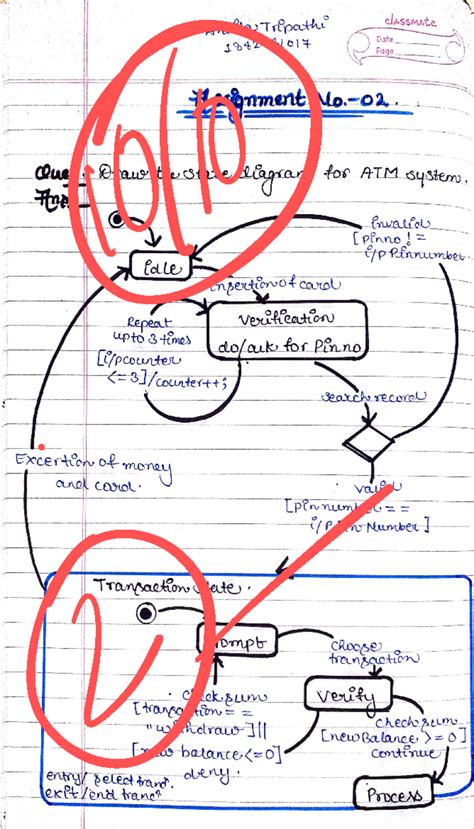 Tripathi
classmate
Date
Page
Assignment No.-02.
Que:- Draw the state diagram for ATM system.
Ans
10/10
idle
invalid
[pinno !=
i/p Pinnumber
insertion of card
Repeat
upto 3 times
[i/pcounter
<=3]/counter++;
Verification
do/ask for Pinno
search record
Excertion of money
and card.
valid
[pinnumber ==
i/p Pin Number]
2
Transaction State.
Prompt
choose
transaction
Verify
checksum
[transaction ==
"withdraw"]||
[new balance <=0]
deny.
checksum
[newBalance >=0]
continue
Process
entry/select tranc.
exit/end tranc